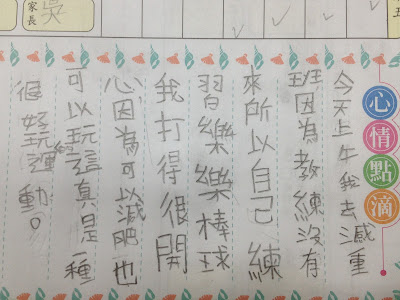 家長
吳
五
心情點滴
今天上午我去減重
班因為教練沒有
來所以自己練
習樂樂棒球
我打得很開
心,因為可以減肥也
可以玩這真是一種
很好玩運動。